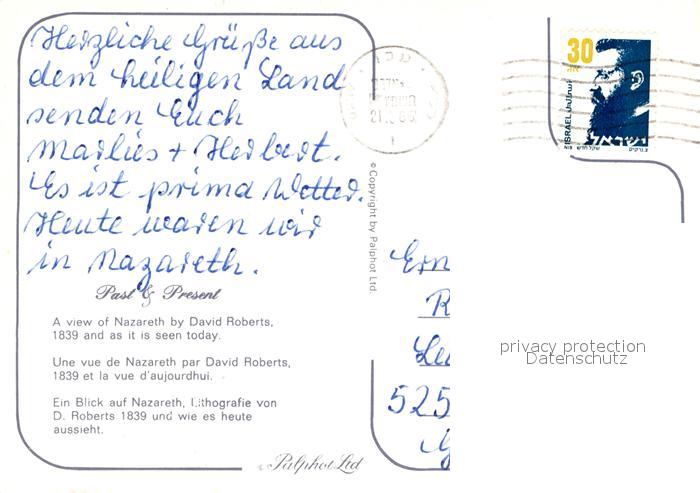 Herzliche Grüße aus
dem heiligen Land
senden Euch
Marlies + Herbert.
Es ist prima Wetter.
Heute waren wir
in Nazareth.
Past & Present
A view of Nazareth by David Roberts,
1839 and as it is seen today.
Une vue de Nazareth par David Roberts,
1839 et la vue d'aujourdhui.
Ein Blick auf Nazareth, Lithografie von
D. Roberts 1839 und wie es heute
aussieht.
Palphot Ltd
©Copyright by Palphot Ltd.
30
ISRAEL
ישראל
שקל חדש
Ern
R
525
privacy protection
Datenschutz